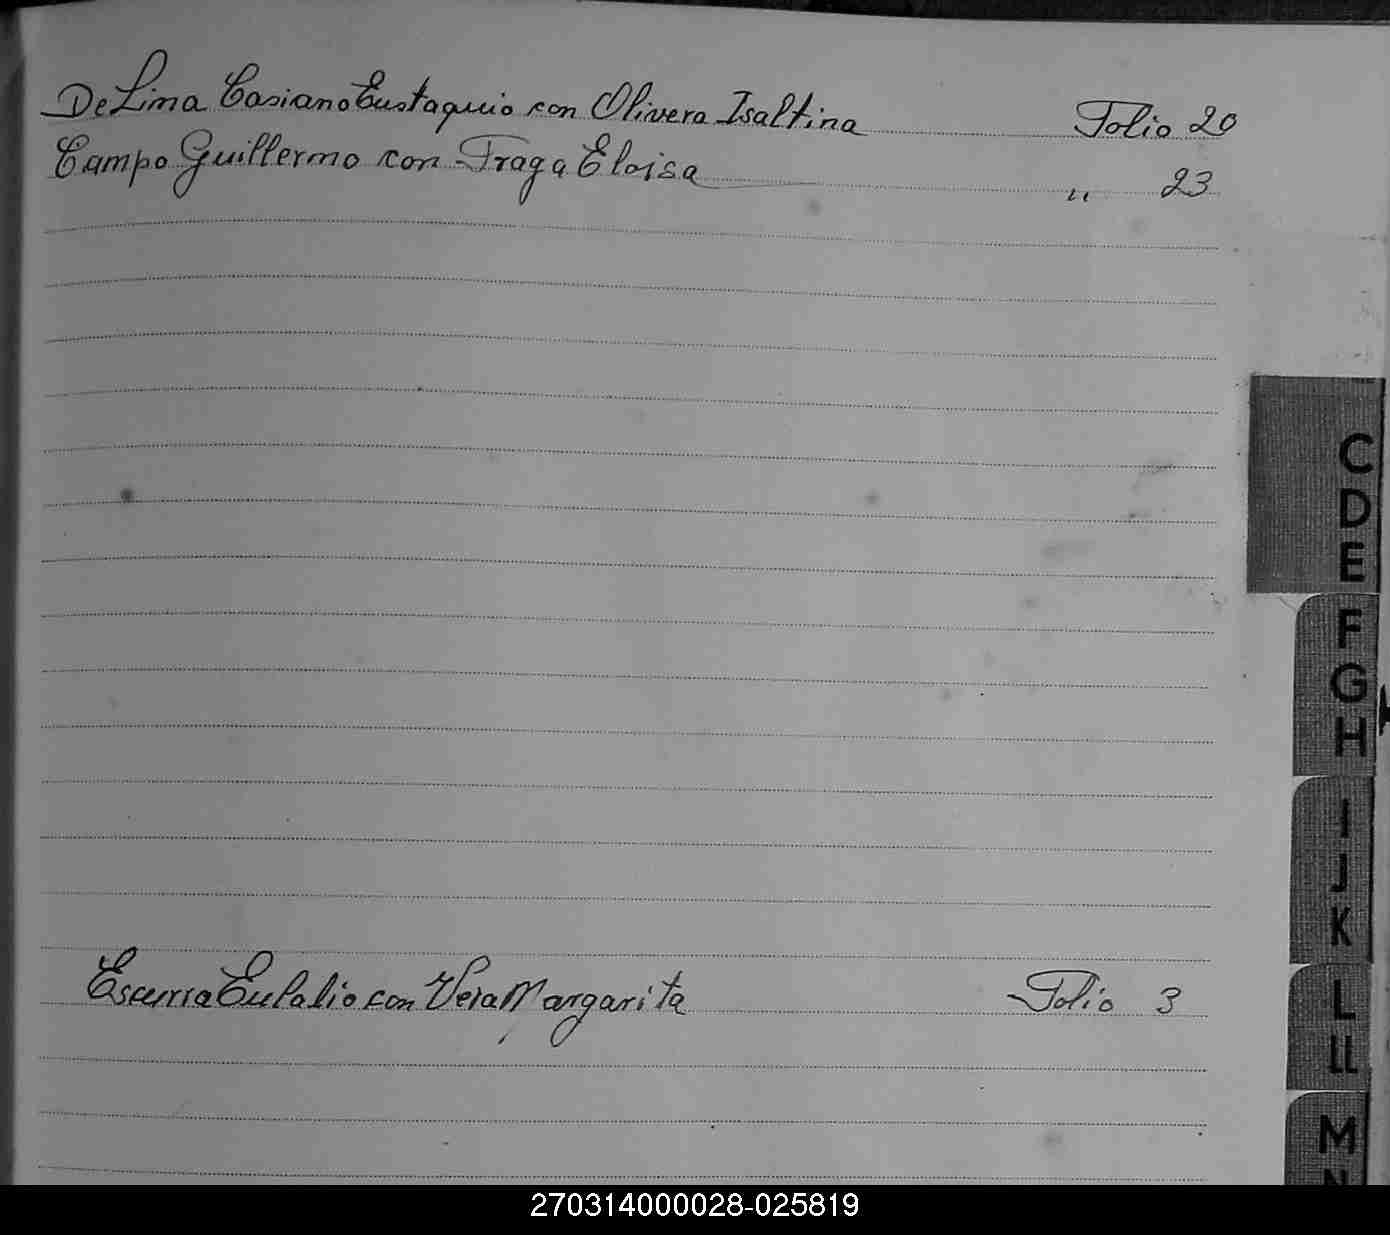 De Lima Casiano Eustaquio con Olivera Isaltina Folio 20
Campo Guillermo con Fraga Eloisa " 23
Escurra Eulalio con Vera Margarita Folio 3
C
D
E
F
G
H
I
J
K
L
LL
M
N
270314000028-025819